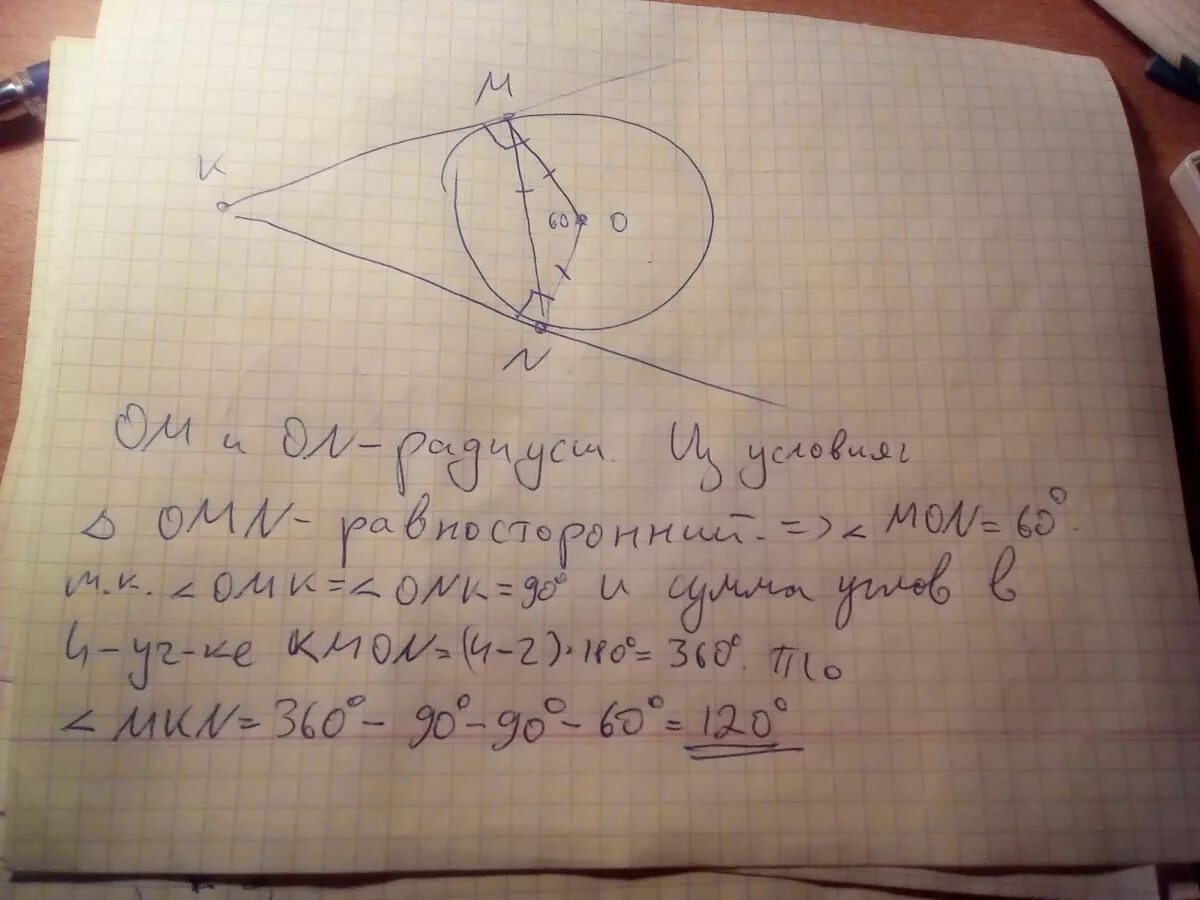 M
K
60 O
N
OM и ON - радиусы. Из условия:
△ OMN - равносторонний. => ∠ MON = 60°.
т.к. ∠ OMK = ∠ ONK = 90° и сумма углов в
4-уг-ке KMON = (4-2)·180° = 360°. То
∠ MKN = 360° - 90° - 90° - 60° = 120°